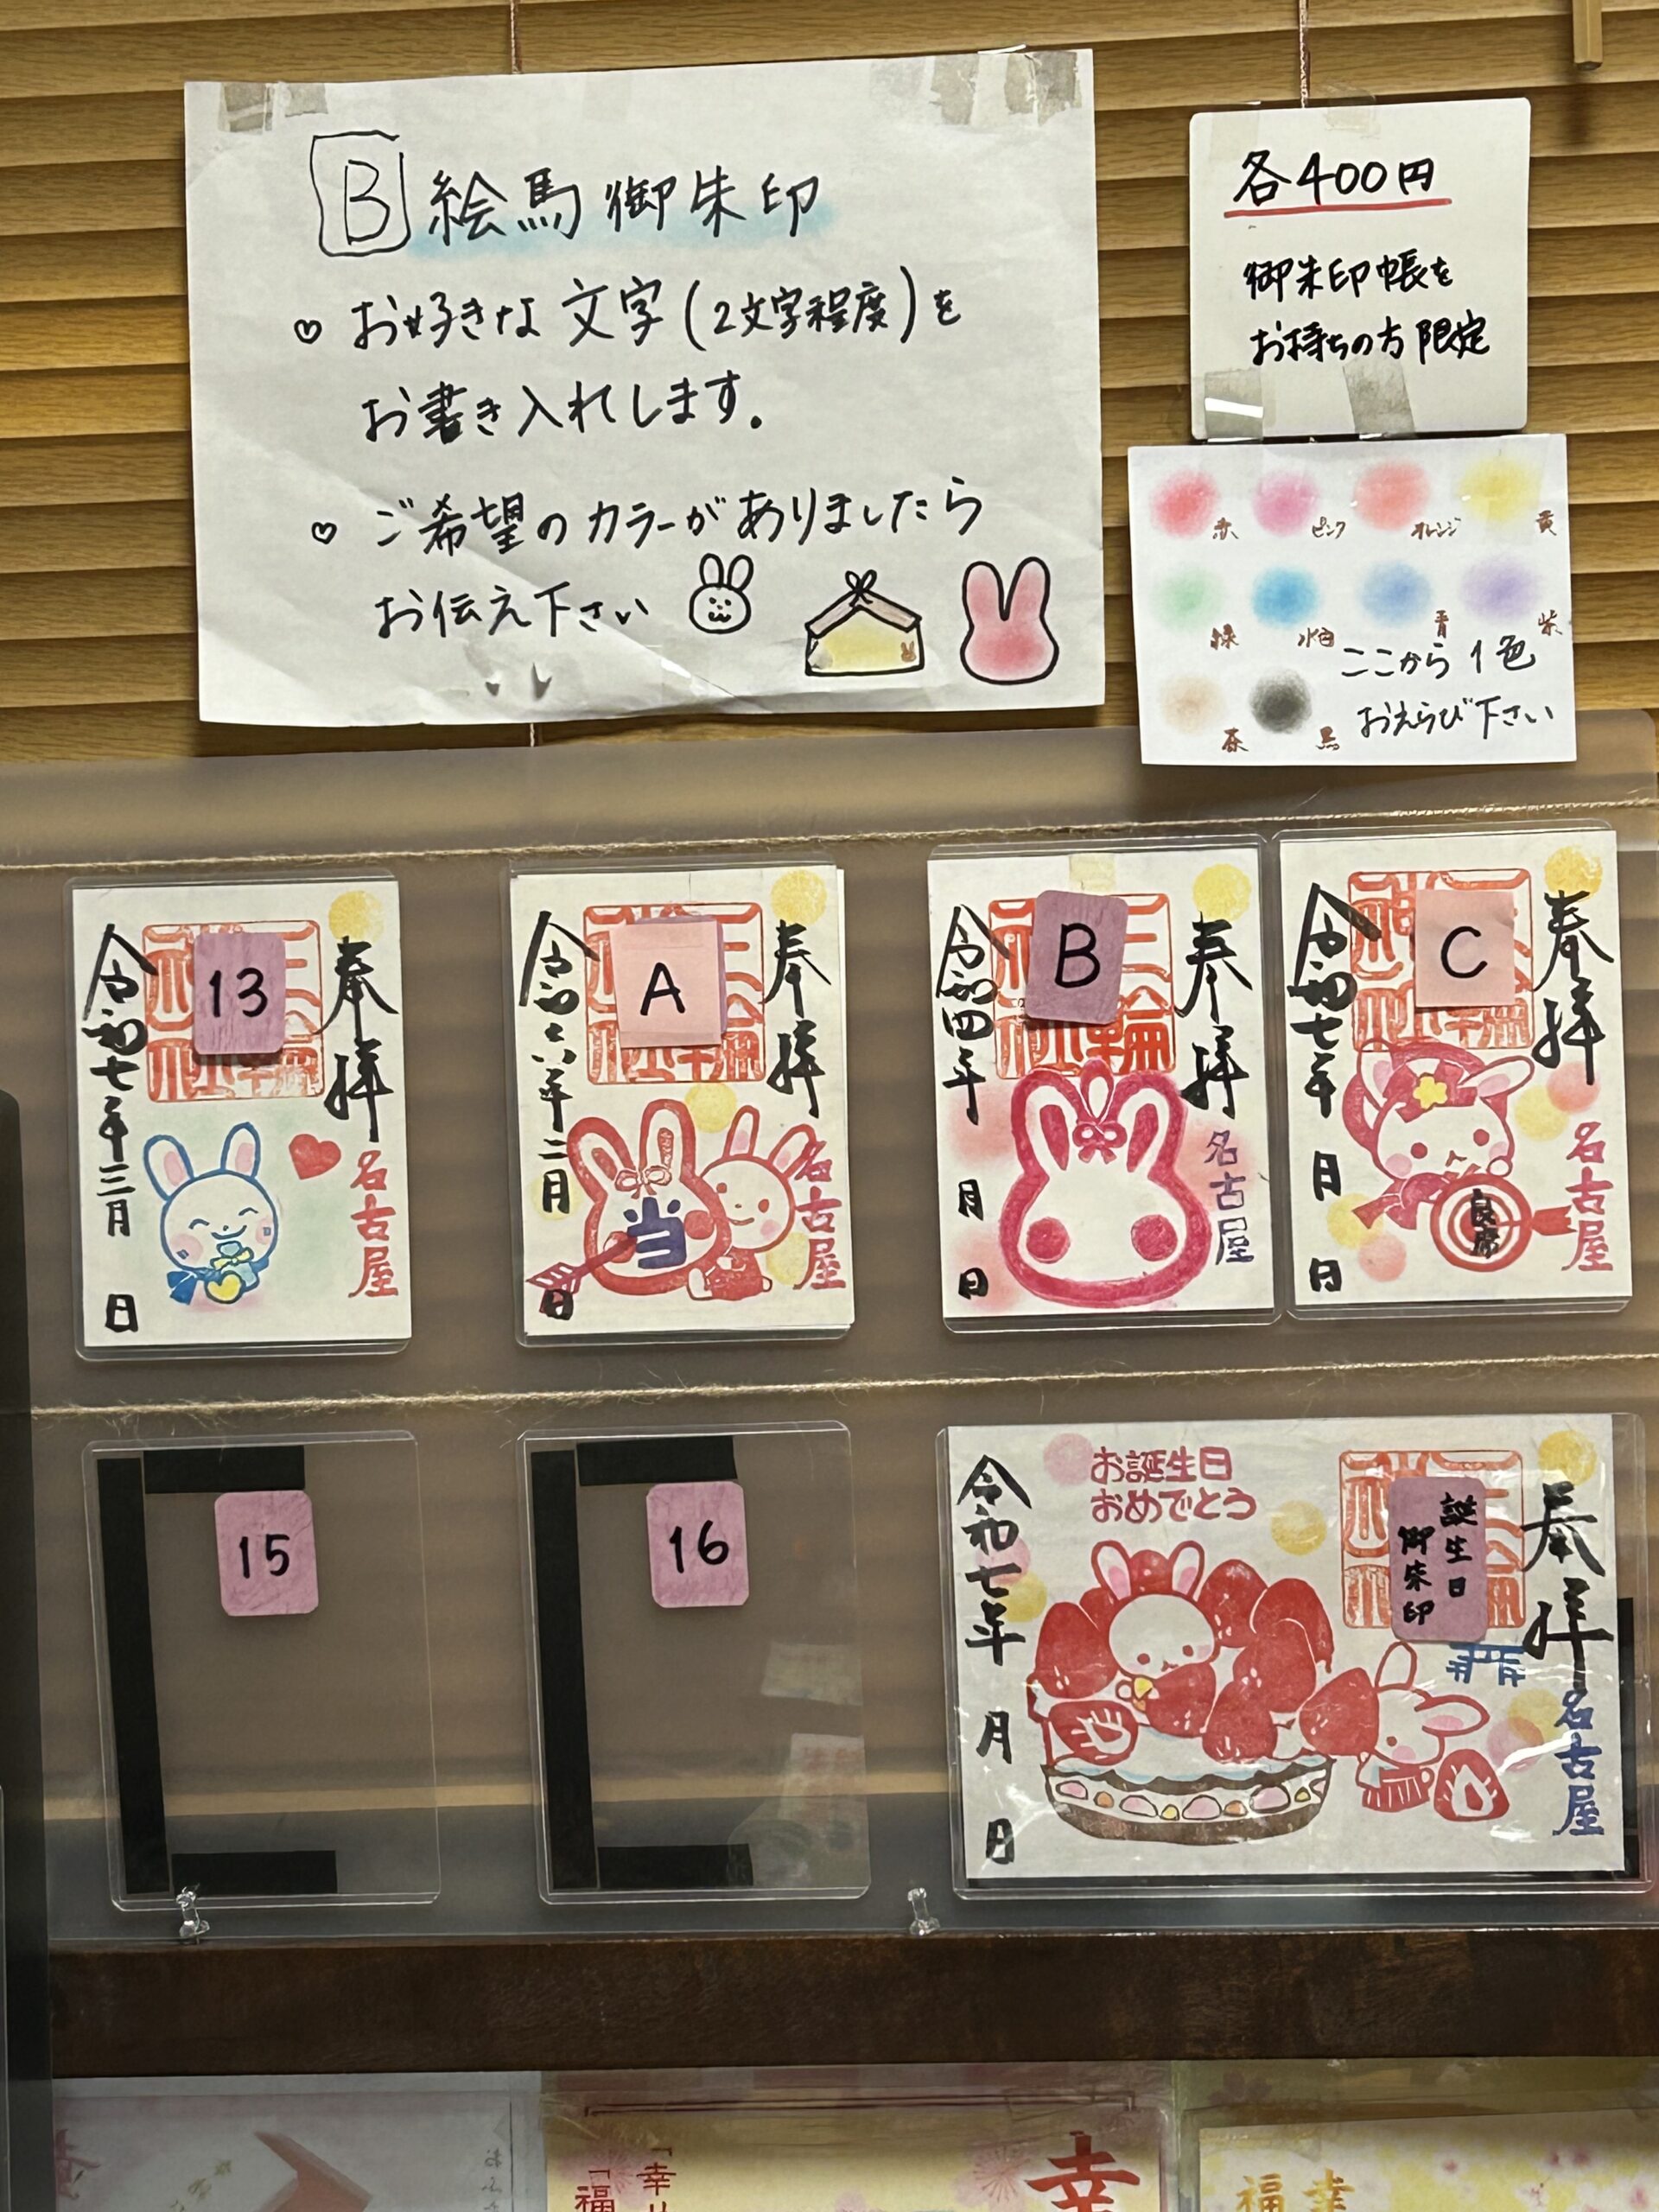 B 絵馬御朱印
♡ お好きな文字(2文字程度)を
お書き入れします。
♡ ご希望のカラーがありましたら
お伝え下さい
各400円
御朱印帳を
お持ちの方限定
赤 ピンク オレンジ 黄
緑 水色 青 紫
茶 黒
ここから1色
おえらび下さい
奉拝
名古屋
13
令和七年三月 日
奉拝
名古屋
A
当
令和六年二月 日
奉拝
名古屋
B
令和四年 月 日
奉拝
名古屋
C
良席
令和七年 月 日
15
16
奉拝
名古屋
誕生日
御朱印
お誕生日
おめでとう
令和七年 月 日
幸
「福
幸
福